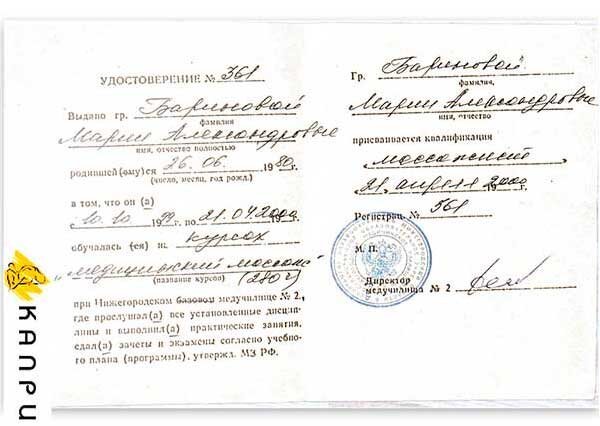 УДОСТОВЕРЕНИЕ № 361
Выдано гр. Бариновой
фамилия
Марии Александровне
имя, отчество полностью
родившей(ому)ся 26.06 1980г.
(число, месяц, год рожд.)
в том, что он (а)
с 10.10 1999 г. по 21.04.2000
обучалась (ся) на курсах
"медицинский массаж"
(название курсов) (280ч)
при Нижегородском базовом медучилище № 2,
где прослушал(а) все установленные дисцип-
лины и выполнил(а) практические занятия,
сдал(а) зачеты и экзамены согласно учебно-
го плана (программы), утвержд. МЗ РФ.
Гр. Бариновой
фамилия,
Марии Александровне
имя, отчество
присваивается квалификация
"массажист"
21, апреля 2000 г.
Регистрац. № 561
М. П.
Директор
медучилища № 2
КАПРИ